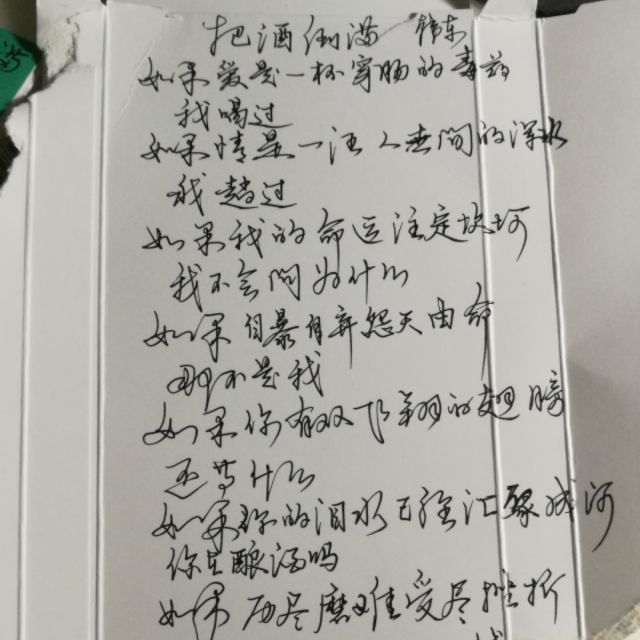 把酒倒满 锦东
如果爱是一杯穿肠的毒药
我喝过
如果情是一汪人世间的深水
我趟过
如果我的命运注定坎坷
我不会问为什么
如果自暴自弃怨天由命
那不是我
如果你有双飞翔的翅膀
还等什么
如果你的泪水已经汇聚成河
你在酿酒吗
如果历尽磨难受尽挫折